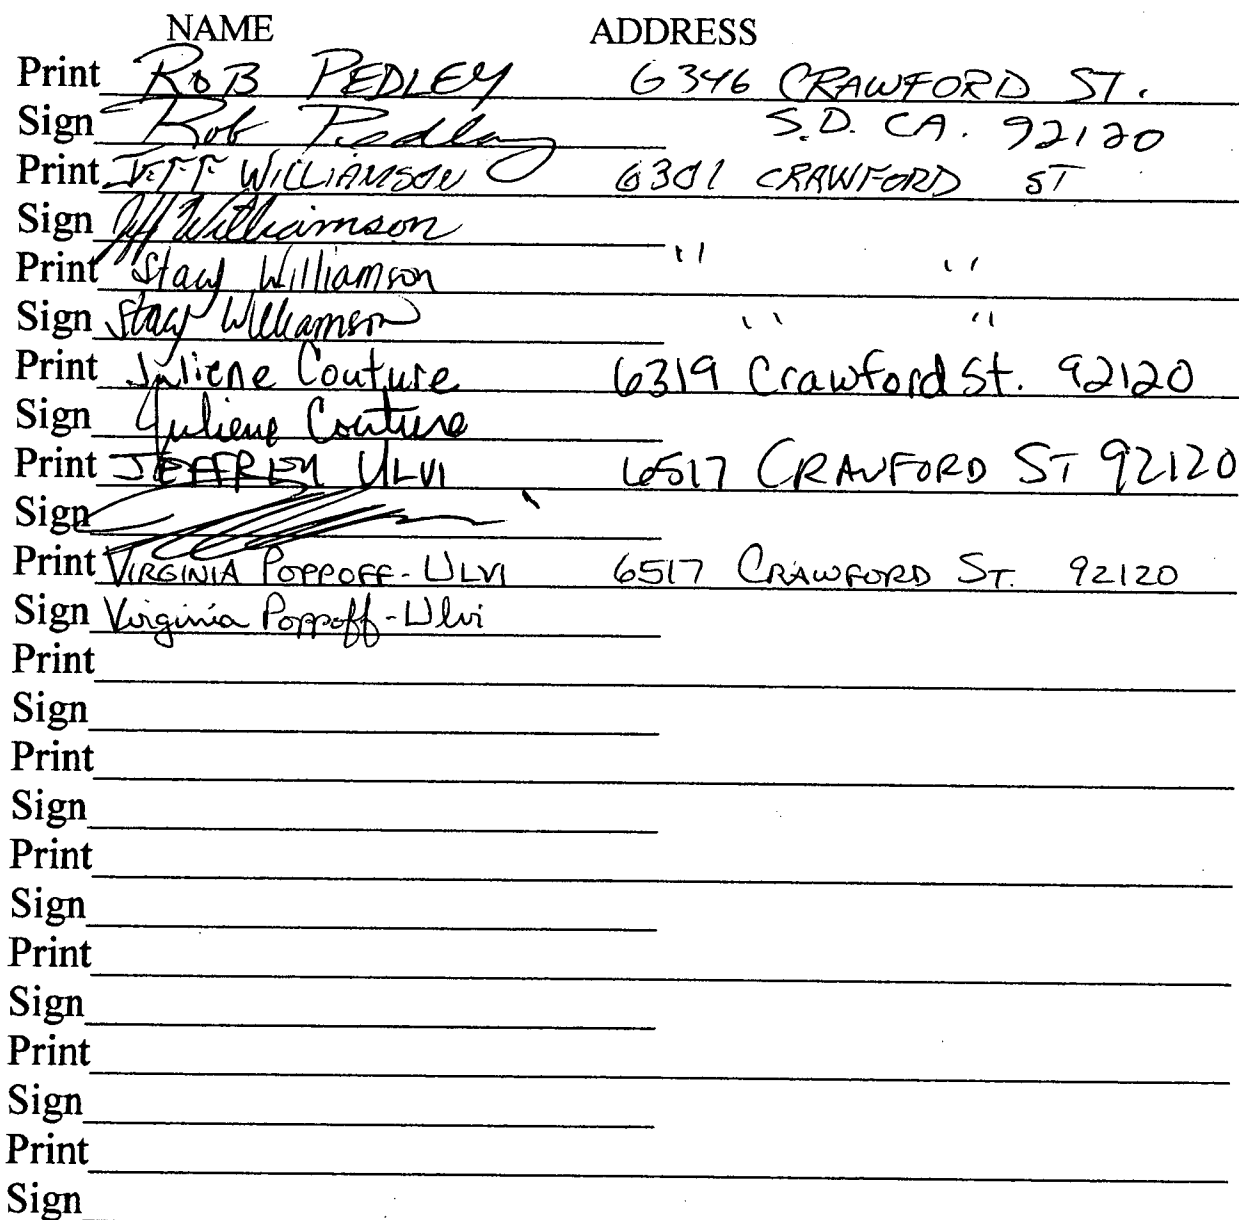 NAME ADDRESS
Print ROB PEDLEY 6346 CRAWFORD ST.
Sign Rob Pedley S.D. CA. 92120
Print JEFF WILLIAMSON 6301 CRAWFORD ST
Sign Jeff Williamson
Print Stacy Williamson " "
Sign Stacy Williamson " "
Print Juliene Couture 6319 Crawford St. 92120
Sign Juliene Couture
Print JEFFREY ULVI 6517 CRAWFORD ST 92120
Sign
Print VIRGINIA POPPOFF-ULVI 6517 CRAWFORD ST. 92120
Sign Virginia Poppoff-Ulvi
Print
Sign
Print
Sign
Print
Sign
Print
Sign
Print
Sign
Print
Sign